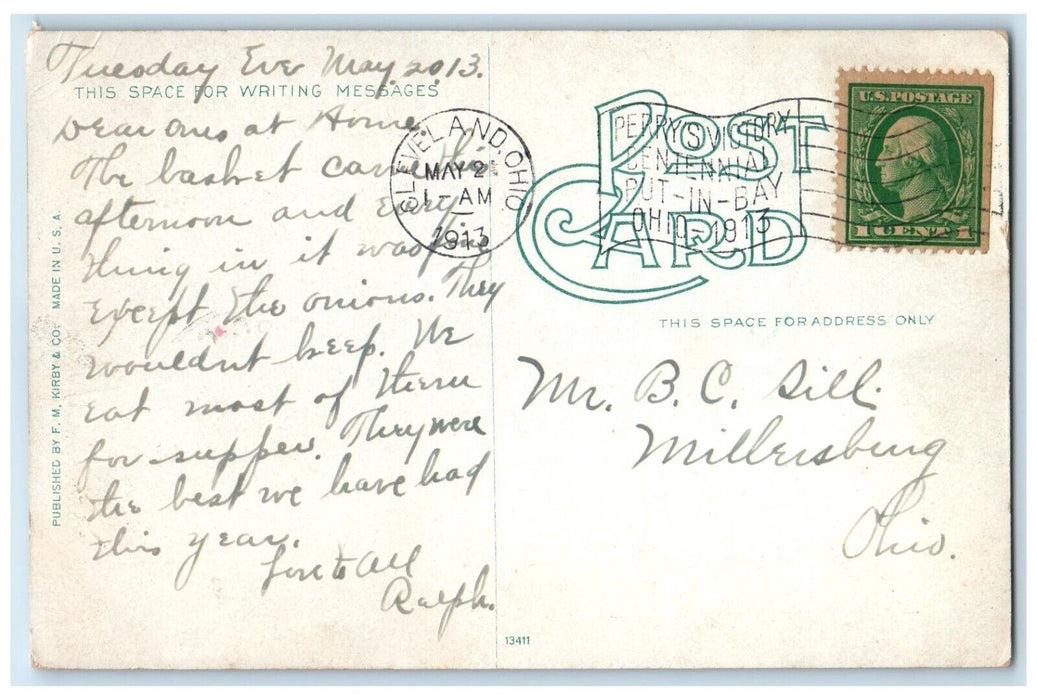 Tuesday Eve May. 20, 13.
THIS SPACE FOR WRITING MESSAGES
Dear ones at Home
The basket came this
afternoon and every
thing in it was fine
except the onions. They
wouldnt keep. We
eat most of them
for supper. They were
the best we have had
this year.
Love to all
Ralph.
PUBLISHED BY F. M. KIRBY & CO. MADE IN U. S. A.
CLEVELAND, OHIO.
MAY 21
1-AM
1913
PERRY'S VICTORY
CENTENNIAL
PUT-IN-BAY
OHIO-1913
POST
CARD
U.S. POSTAGE
1 CENT 1
THIS SPACE FOR ADDRESS ONLY
Mr. B. C. Sill.
Millersburg
Ohio.
13411